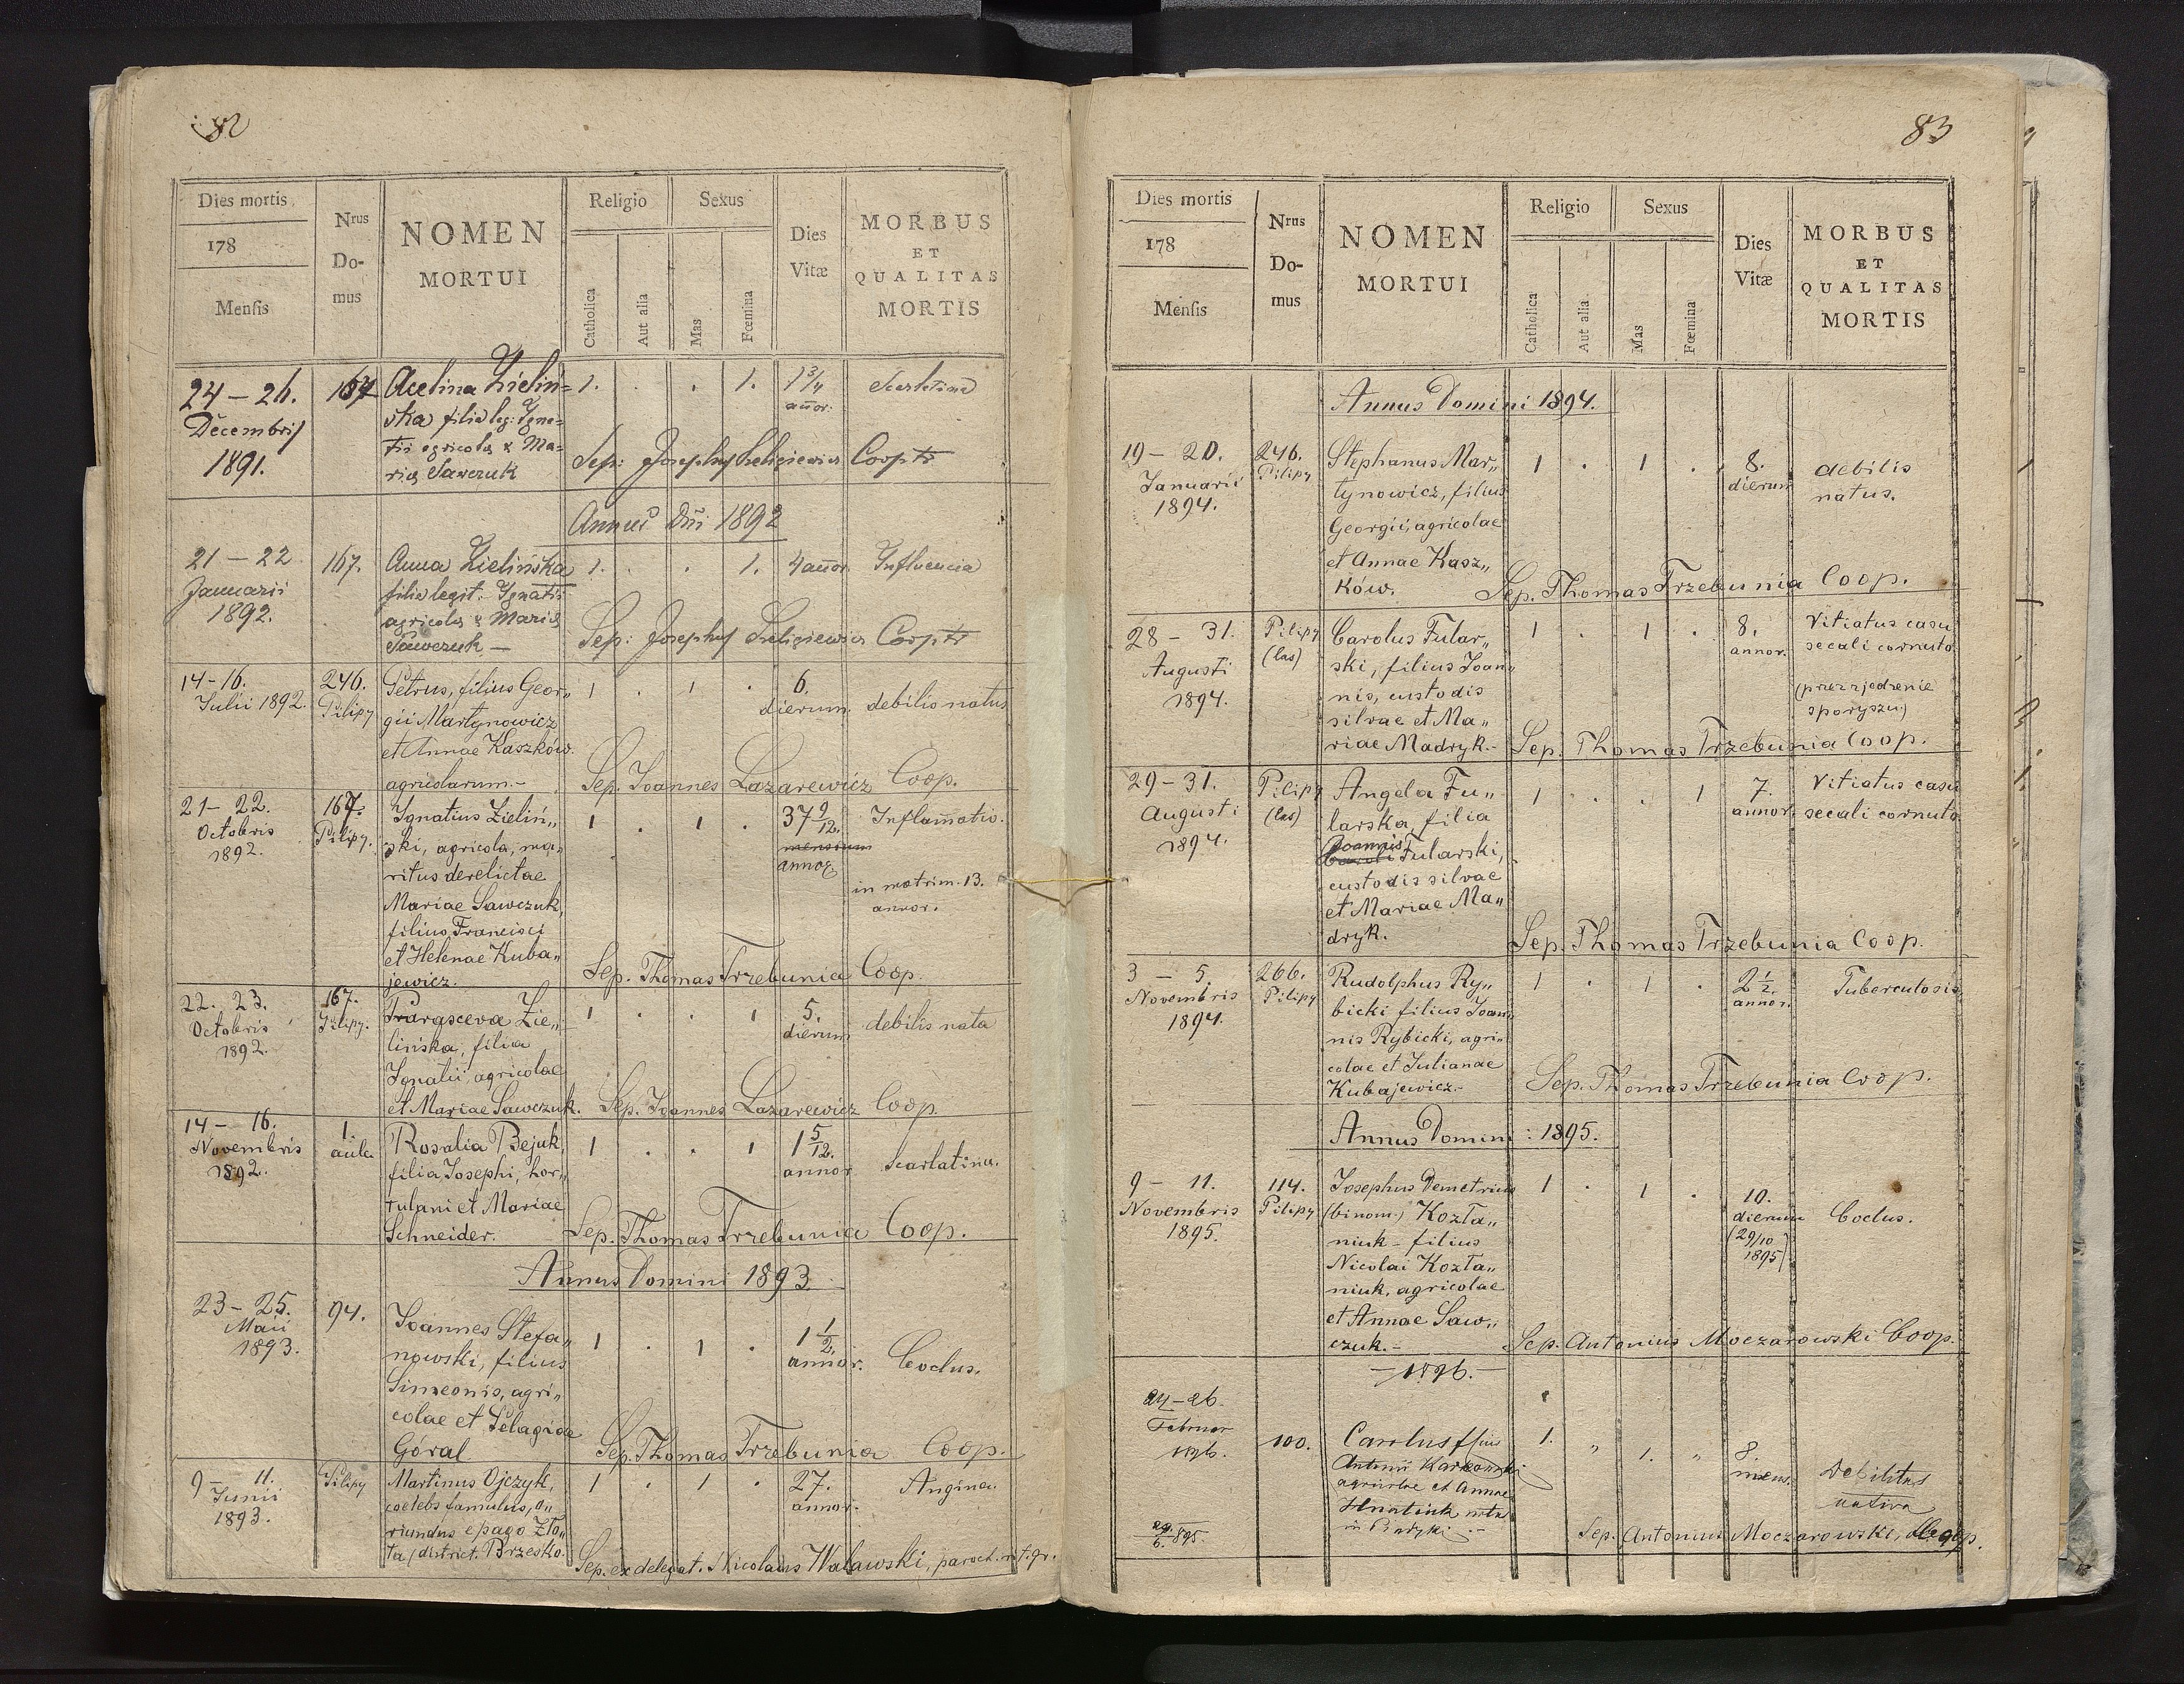 82
Dies mortis
178
Mensis
Nrus
Do-
mus
NOMEN
MORTUI
Religio
Catholica
Aut alia
Sexus
Mas
Fœmina
Dies
Vitæ
MORBUS
ET
QUALITAS
MORTIS
24 – 26.
Decembris
1891.
167
Acelina Zieliń=
ska filia leg: Igna=
tii agricolae & Ma=
riae Sawczuk
1. . . 1.
1 3/4
annor.
Scarlatina
Sep: Josephus Seligiewicz Cooptr
Annus Dni 1892
21 – 22
Januarii
1892.
167.
Anna Zielińska
filia legit. Ignatii
agricolae & Mariae
Sawczuk –
1. . . 1.
4 annor.
Influencia
Sep: Josephus Seligiewicz Cooptr
14-16.
Iulii 1892.
246.
Pilipy
Petrus, filius Geor„
gii Martynowicz
et Annae Kaszków.
agricolarum.-
1 . 1 .
6.
dierum.
debilis natus
Sep. Ioannes Lazarewicz Coop.
21- 22.
Octobris
1892.
167.
Pilipy.
Ignatius Zieliń„
ski, agricola, ma„
ritus derelictae
Mariae Sawczuk,
filius Francisci
et Helenae Kuba„
jewicz.
1 . 1 .
37 9/12.
mensium
annor.
Inflam̄atio.
in matrim. 13.
annor.
Sep. Thomas Trzebunia Coop.
22. 23.
Octobris
1892.
167.
Pilipy.
Parasceva Zie„
lińska, filia
Ignatii, agricolae
et Mariae Sawczuk.
1 . . 1
5.
dierum
debilis nata
Sep. Ioannes Lazarewicz Coop.
14 – 16.
Novembris
1892.
1.
aula
Rosalia Bejuk,
filia Iosephi, hor„
tulani et Mariae
Schneider.
1 . . 1
1 5/12.
annor
Scarlatina.
Sep. Thomas Trzebunia Coop.
Annus Domini 1893
23 – 25.
Maii
1893.
94.
Ioannes Stefa„
nowski, filius
Simeonis, agri„
colae et Pelagiae
Góral
1 . 1 .
1 1/2.
annor.
Coclus.
Sep. Thomas Trzebunia Coop.
9 – 11.
Iunii
1893.
Pilipy
Martinus Ojczyk,
coelebs famulus, o„
riundus e pago Zło„
ta, district. Brzesko.
1 . 1 .
27.
annor.
Angina.
Sep. ex delegat. Nicolaus Walawski, paroch. rit. gr.
83
Dies mortis
178
Mensis
Nrus
Do-
mus
NOMEN
MORTUI
Religio
Catholica
Aut alia
Sexus
Mas
Fœmina
Dies
Vitæ
MORBUS
ET
QUALITAS
MORTIS
Annus Domini 1894.
19 – 20.
Ianuarii
1894.
246.
Pilipy
Stephanus Mar„
tynowicz, filius
Georgii, agricolae
et Annae Kasz„
ków.
1 . 1 .
8.
dierum
debilis
natus.
Sep. Thomas Trzebunia Coop.
28 – 31.
Augusti
1894.
Pilipy
(las)
Carolus Fular„
ski, filius Ioan„
nis, custodis
silvae et Ma„
riae Madryk.-
1 . 1 .
8.
annor.
Vitiatus casu
secali cornuto
(przezjedzenie
sporyszu)
Sep. Thomas Trzebunia Coop.
29 – 31.
Augusti
1894.
Pilipy
(las)
Angela Fu„
larska, filia
Ioannis
Caroli Fularski,
custodis silvae
et Mariae Ma„
dryk.
1 . . 1
7.
annor.
Vitiatus casu
secali cornuto
Sep. Thomas Trzebunia Coop.
3 – 5.
Novembris
1894.
266.
Pilipy
Rudolphus Ry„
bicki filius Ioan„
nis Rybicki, agri„
colae et Iulianae
Kubajewicz.-
1 . 1 .
2 1/2.
annor.
Tuberculosis
Sep. Thomas Trzebunia Coop.
Annus Domini : 1895.
9 – 11.
Novembris
1895.
114.
Pilipy
Iosephus Demetrius
(binom.) Kozta„
niuk – filius
Nicolai Kozta„
niuk, agricolae
et Annae Saw„
czuk.-
1 . 1 .
10.
dierum
(29/10
1895)
Coclus.
Sep. Antonius Moczarowski Coop.
– 1896. –
24 – 26
Februar
1896.
100.
Carolus f/ius
Antonii
agricolae et Annae
Hnatiuk
29./6. 895.
1. „ 1. „
8.
mens.
Debilitas
nativa
Sep. Antonius Moczarowski, Coop.